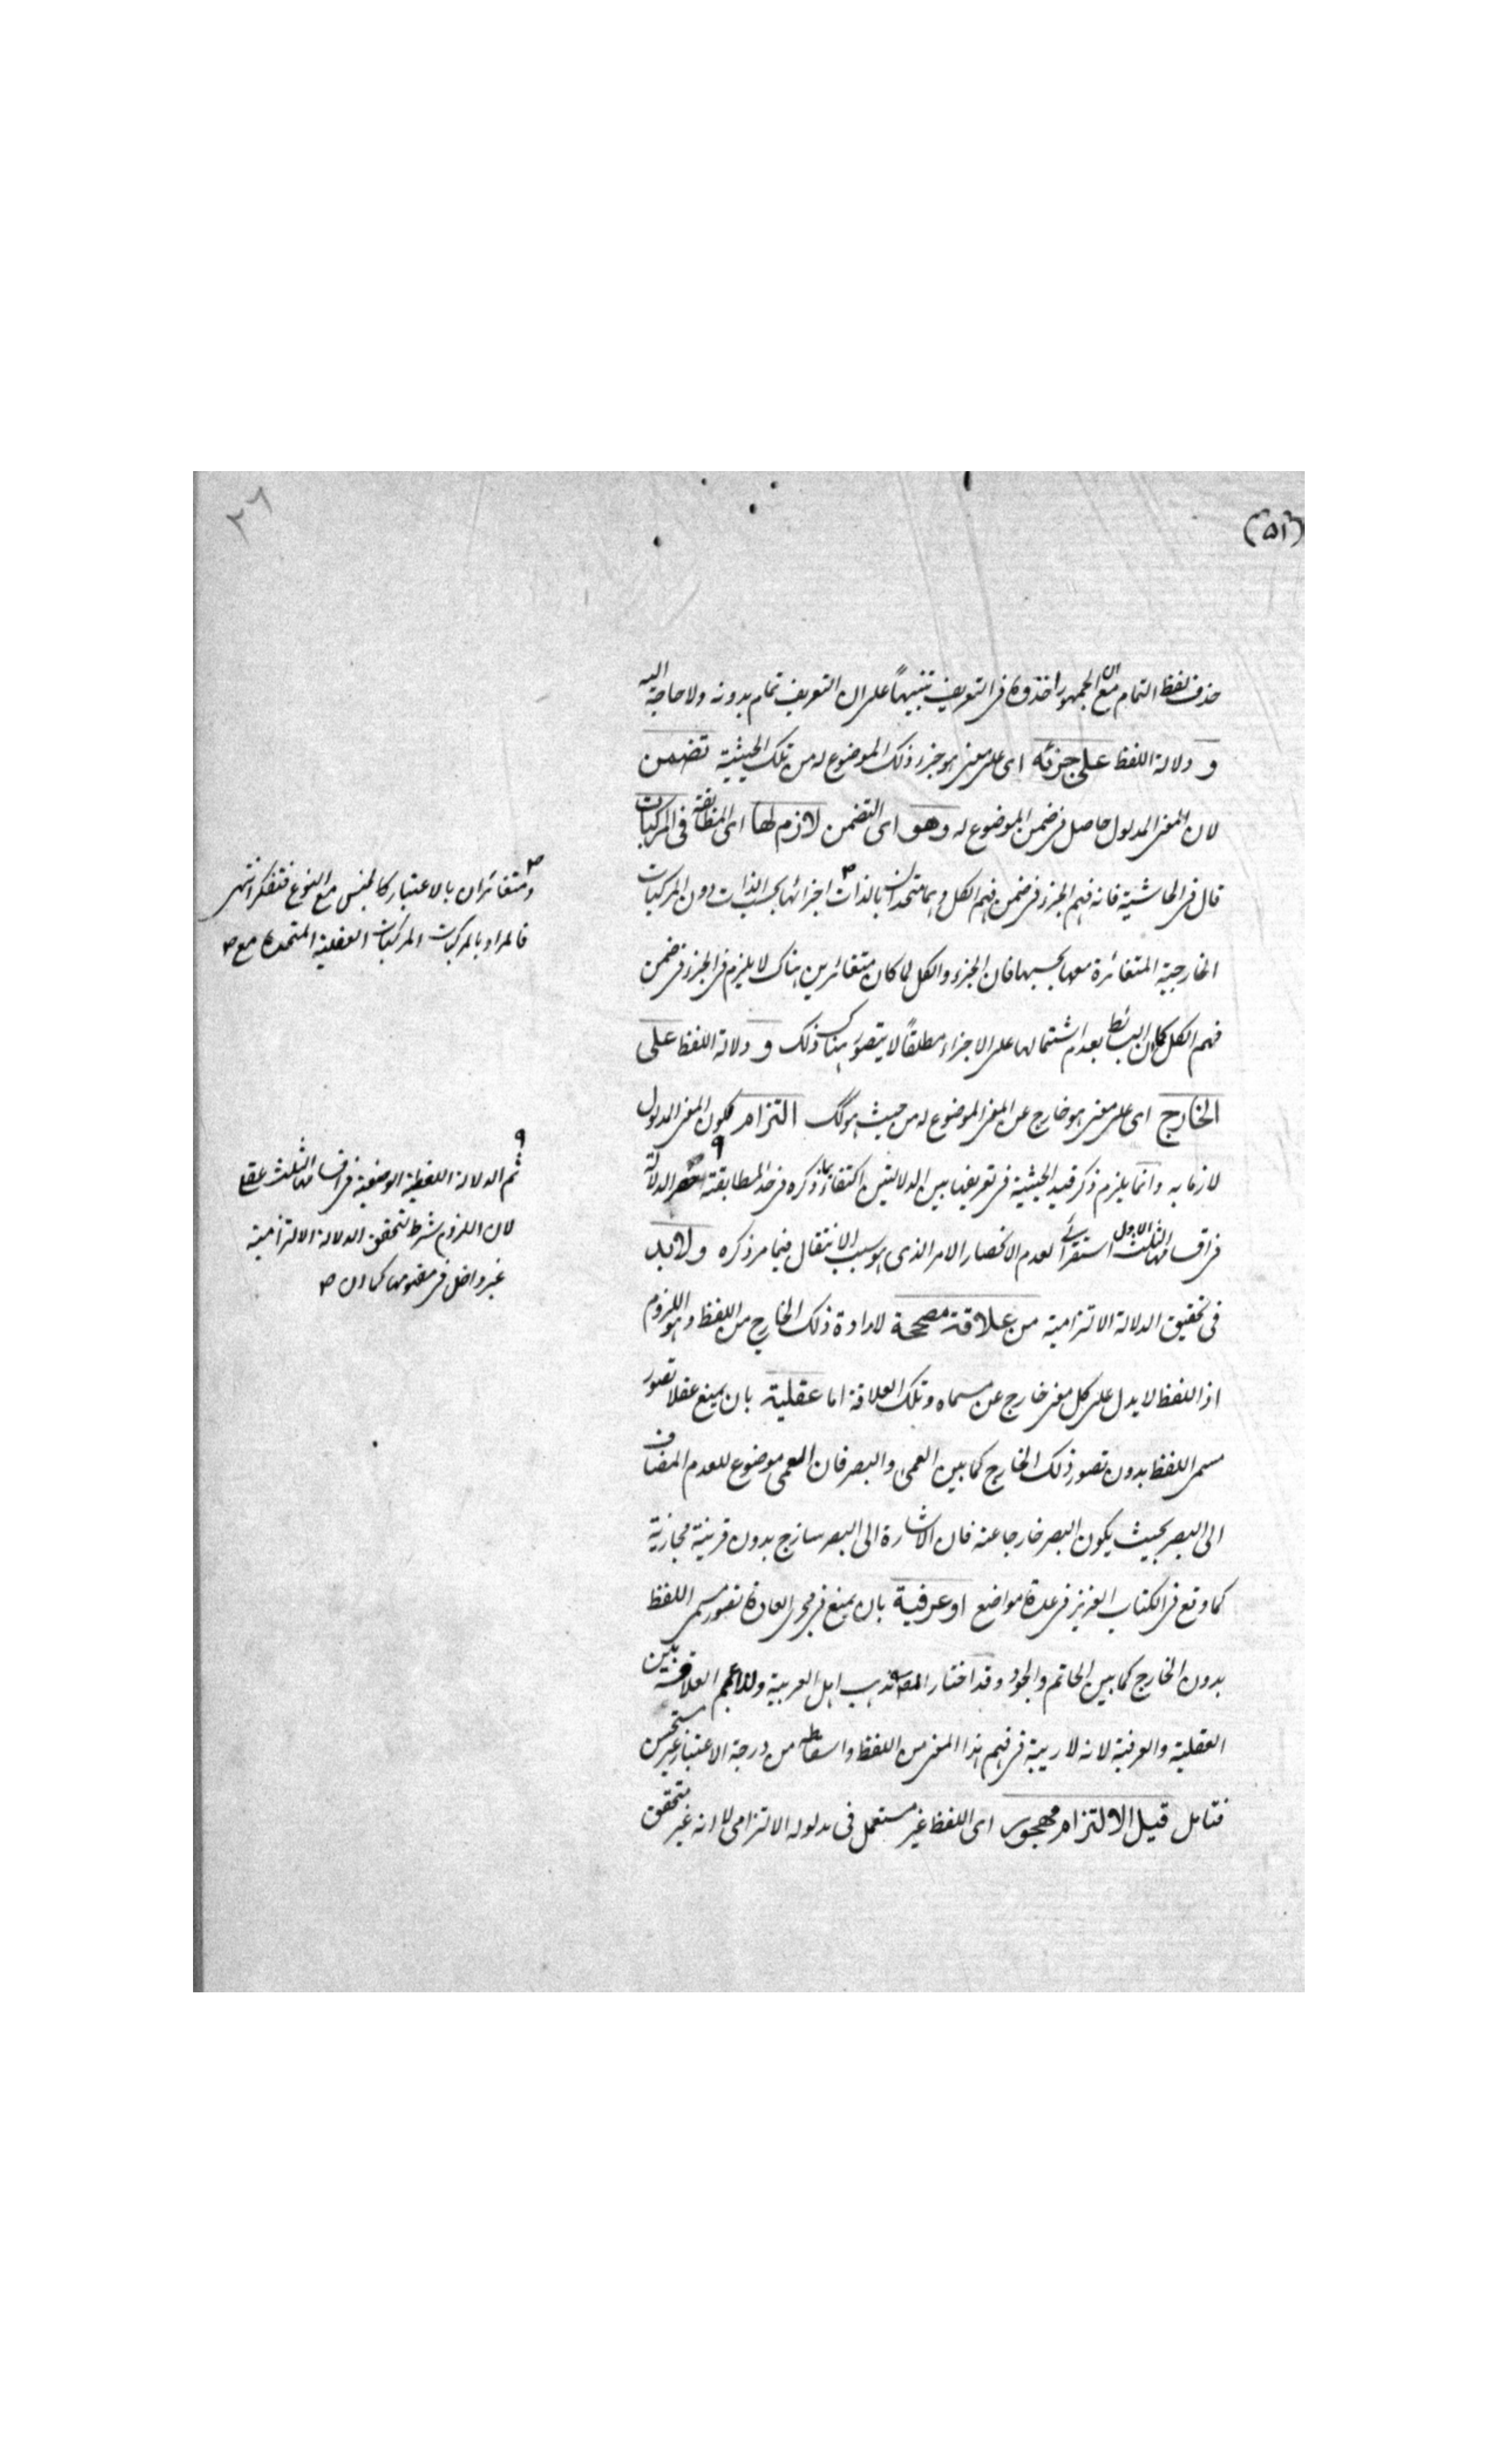 (۵۱)
۲٦
حذف لفظ التمام مع ان الجمهور اخذوه فى التعريف تنبيهاً على ان التعريف تمام بدونه ولا حاجة اليه
و دلالة اللفظ على جزئه اى على معنى هو جزء ذلك الموضوع له من تلك الحيثية تضمن
لان المعنى المدلول حاصل فى ضمن الموضوع له وهو اى التضمن لازم لها اى المطابقة فى المركبات
قال فى الحاشية فانه فهم الجزء فى ضمن فهم الكل وهما متحدان بالذات اجزائها بحسب الذات دون المركبات
الخارجية المتغائرة معها بحسبها فان الجزء والكل لما كان متغائرين هناك لا يلزم فهم الجزء فى ضمن
فهم الكل كما ان البسائط بعدم اشتمالها على الاجزاء مطلقاً لا يتصور هناك ذلك و دلالة اللفظ على
الخارج اى على معنى هو خارج عن المعنى الموضوع له من حيث هو كك التزام لكون المعنى المدلول
لازما به وانما يلزم ذكر قيد الحيثية فى تعريف هاتين الدلالتين اكتفاء بما ذكره فى حد المطابقة حصر الدلالة
فى اقسامها الثلث الاول استقرائى لعدم الانحصار الامر الذى هو سبب الانتقال فيما مر ذكره ولابد
فى تحقيق الدلالة الالتزامية من علاقة مصححة لارادة ذلك الخارج من اللفظ وهو اللزوم
اذ اللفظ لا يدل على كل معنى خارج عن مسماه وتلك العلاقة اما عقلية بان يمنع عقلا تصور
مسمى اللفظ بدون تصور ذلك الخارج كما بين العمى والبصر فان العمى موضوع للعدم المضاف
الى البصر بحيث يكون البصر خارجا عنه فان الاشارة الى البصر سازج بدون قرينة مجازية
كما وقع فى الكتاب العزيز فى عدة مواضع او عرفية بان يمنع فى مجرى العادة تصور مسمى اللفظ
بدون الخارج كما بين الحاتم والجود وقد اختار المصنف مذهب اهل العربية ولذا عمم العلاقة بين
العقلية والعرفية لانه لا ريبة فى فهم هذا المعنى من اللفظ واسقاطه من درجة الاعتبار غير مستحسن
فتامل قيل الالتزام مهجور اى اللفظ غير مستعمل فى مدلوله الالتزامى لانه غير متحقق
ومتغائران بالاعتبار كالجنس مع النوع فتفكر انتهى
فالمراد بالمركبات المركبات العقلية المتحدة مع
ثم الدلالة اللفظية الوضعية فى اقسامها الثلث عقلى
لان اللزوم شرط لتحقق الدلالة الالتزامية
غير داخل فى مفهومها كما ان